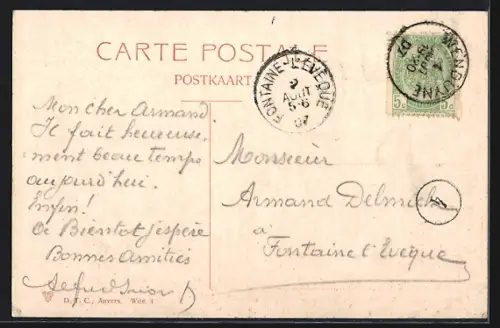 CARTE POSTALE
POSTKAART
FONTAINE-L'EVEQUE
AOUT
5-6
07
WENDUYNE
07
5c 5c
Mon cher Armand
Il fait heureuse-
ment beau temps
aujourd'hui.
Enfin!
à Bientôt j'espère
Bonnes Amitiés
Monsieur
Armand
à
Fontaine l'Evêque
D. T. C., Anvers. Wén. 4